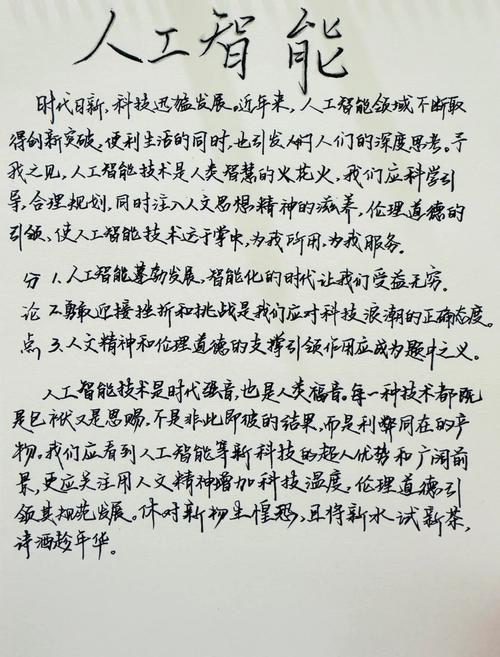 人工智能
时代日新,科技迅猛发展。近年来,人工智能领域不断取
得创新突破。便利生活的同时,也引发人们的深度思考。予
我之见,人工智能技术是人类智慧的火花火,我们应科学引
导,合理规划,同时注入人文思想精神的滋养,伦理道德的
引领、使人工智能技术运于掌中,为我所用,为我服务。
分 1.人工智能蓬勃发展,智能化的时代让我们受益无穷。
论 2.勇敢迎接挫折和挑战是我们应对科技浪潮的正确态度。
点 3.人文精神和伦理道德的支撑引领作用应成为题中之义。
人工智能技术是时代强音,也是人类福音。每一种技术都既
是包袱又是恩赐,不是非此即彼的结果,而是利弊同在的产
物。我们应看到人工智能等新科技的超人优势和广阔前
景,更应关注用人文精神增加科技温度。伦理道德引
领其规范发展。休对新物生惶恐,且将新水试新茶,
诗酒趁年华。